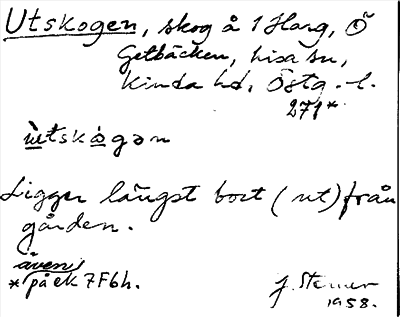 Utskogen, skog å 1 Harg, Ö
Getbäcken, Kisa sn,
Kinda hd, Östg. l.
271*
ùtskågən
Ligger längst bort (ut) från
gården.
även
* på ek 7F6h.
J. Stenner
1958.